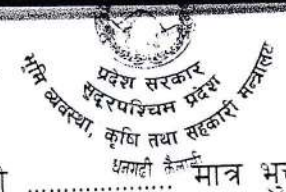 प्रदेश सरकार
सुदूरपश्चिम प्रदेश
भूमि व्यवस्था, कृषि तथा सहकारी मन्त्रालय
धनगढी कैलाली
मात्र